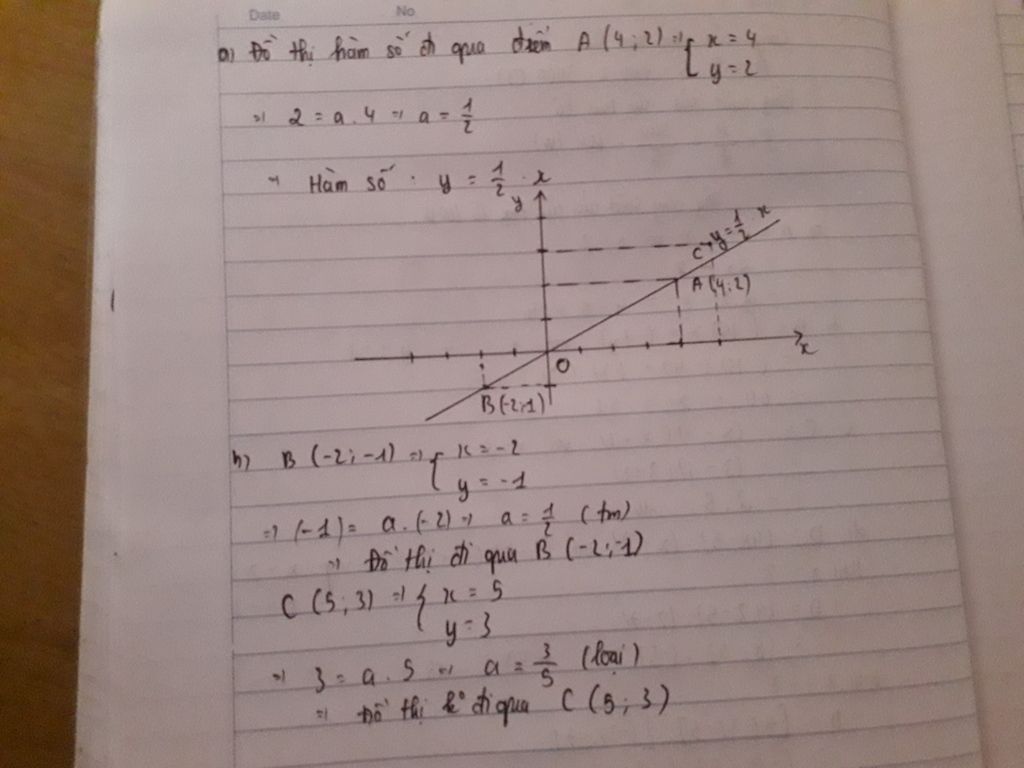 Date No
a) Đồ thị hàm số đi qua điểm A (4 ; 2) => { x = 4
y = 2
=> 2 = a . 4 => a = 1/2
=> Hàm số : y = 1/2 . x
y
C y = 1/2 x
A (4; 2)
O
x
B (-2;-1)
b) B (-2; -1) => { x = -2
y = -1
=> (-1) = a . (-2) => a = 1/2 (tm)
=> Đồ thị đi qua B (-2; -1)
C (5; 3) => { x = 5
y = 3
=> 3 = a . 5 => a = 3/5 (loại)
=> Đồ thị k° đi qua C (5 ; 3)